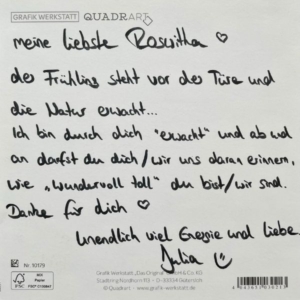 GRAFIK WERKSTATT QUADRART
meine liebste Roswitha ♡
der Frühling steht vor der Türe und
die Natur erwacht...
Ich bin durch dich "erwacht" und ab und
an darfst du dich/wir uns daran erinnern,
wie "wundervoll toll" du bist/wir sind.
Danke für dich ♡
unendlich viel Energie und Liebe.
Julia ☺
Nr. 10179
Grafik Werkstatt „Das Original" GmbH & Co. KG
Stadtring Nordhorn 113 · D-33334 Gütersloh
© Quadrart · www.grafik-werkstatt.de
FSC
MIX
Papier